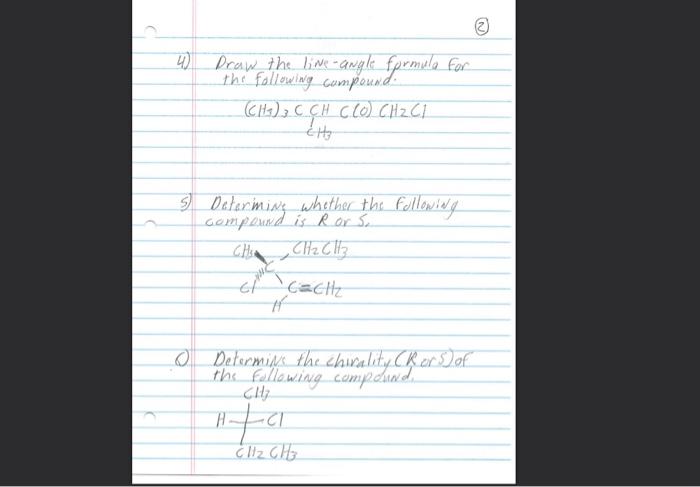 ②
4) Draw the line-angle formula for
the following compound.
(CH3)3 C CH C(O) CH2Cl
CH3
5) Determine whether the following
compound is R or S.
CH3 CH2CH3
C
Cl C=CH2
H
Determine the chirality (R or S) of
the following compound.
CH3
H Cl
CH2CH3